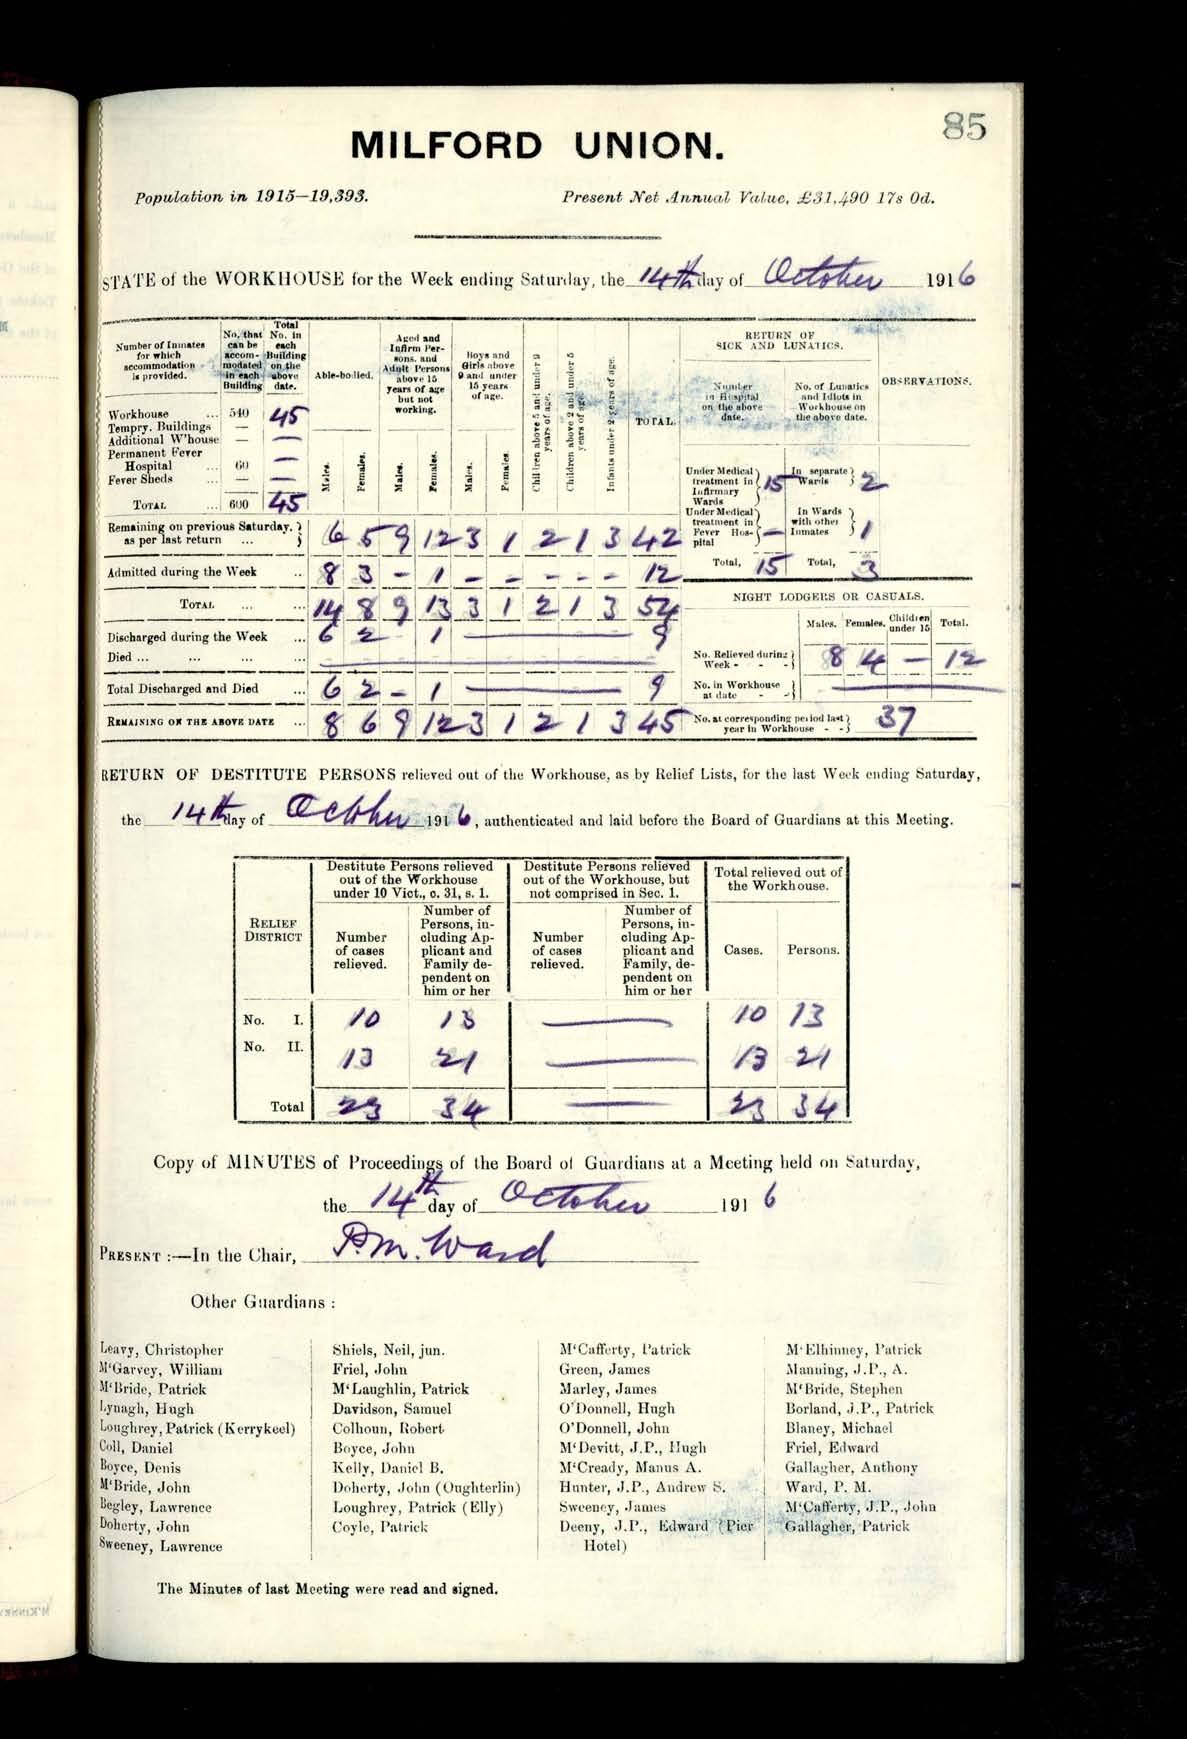 85
MILFORD UNION.
Population in 1915—19,393. Present Net Annual Value, £31,490 17s 0d.
STATE of the WORKHOUSE for the Week ending Saturday, the 14th day of October 1916
Number of Inmates for which accommodation is provided. No. that can be accommodated in each Building Total No. in each Building on the above date.
Workhouse ... 540 45
Tempry. Buildings — —
Additional W'house — —
Permanent Fever
Hospital ... 60 —
Fever Sheds ... — —
TOTAL ... 600 45
Able-bodied. Aged and Infirm Persons, and Adult Persons above 15 years of age but not working. Boys and Girls above 9 and under 15 years of age. Children above 5 and under 9 years of age. Children above 2 and under 5 years of age. Infants under 2 years of age. TOTAL.
Males. Females. Males. Females. Males. Females.
Remaining on previous Saturday, as per last return ... 6 5 9 12 3 1 2 1 3 42
Admitted during the Week ... 8 3 - 1 - - - - - 12
TOTAL ... ... 14 8 9 13 3 1 2 1 3 54
Discharged during the Week ... 6 2 1 — 9
Died ... ... ... ... —
Total Discharged and Died ... 6 2 - 1 — 9
REMAINING ON THE ABOVE DATE ... 8 6 9 12 3 1 2 1 3 45
RETURN OF
SICK AND LUNATICS.
OBSERVATIONS.
Number in Hospital on the above date. No. of Lunatics and Idiots in Workhouse on the above date.
Under Medical treatment in Infirmary Wards 15 In separate Wards 2
Under Medical treatment in Fever Hospital — In Wards with other Inmates 1
Total, 15 Total, 3
NIGHT LODGERS OR CASUALS.
Males. Females. Children under 15 Total.
No. Relieved during Week - - - 8 4 — 12
No. in Workhouse at date - - —
No. at corresponding period last year in Workhouse - - 37
RETURN OF DESTITUTE PERSONS relieved out of the Workhouse, as by Relief Lists, for the last Week ending Saturday,
the 14th day of October 1916, authenticated and laid before the Board of Guardians at this Meeting.
RELIEF DISTRICT
Destitute Persons relieved out of the Workhouse under 10 Vict., c. 31, s. 1.
Destitute Persons relieved out of the Workhouse, but not comprised in Sec. 1.
Total relieved out of the Workhouse.
Number of cases relieved. Number of Persons, including Applicant and Family dependent on him or her
Number of cases relieved. Number of Persons, including Applicant and Family, dependent on him or her
Cases. Persons.
No. I. 10 13 — 10 13
No. II. 13 21 — 13 21
Total 23 34 — 23 34
Copy of MINUTES of Proceedings of the Board of Guardians at a Meeting held on Saturday,
the 14th day of October 1916
PRESENT :—In the Chair, P.M. Ward
Other Guardians :
Leavy, Christopher
M'Garvey, William
M'Bride, Patrick
Lynagh, Hugh
Loughrey, Patrick (Kerrykeel)
Coll, Daniel
Boyce, Denis
M'Bride, John
Begley, Lawrence
Doherty, John
Sweeney, Lawrence
Shiels, Neil, jun.
Friel, John
M'Laughlin, Patrick
Davidson, Samuel
Colhoun, Robert
Boyce, John
Kelly, Daniel B.
Doherty, John (Oughterlin)
Loughrey, Patrick (Elly)
Coyle, Patrick
M'Cafferty, Patrick
Green, James
Marley, James
O'Donnell, Hugh
O'Donnell, John
M'Devitt, J.P., Hugh
M'Cready, Manus A.
Hunter, J.P., Andrew S.
Sweeney, James
Deeny, J.P., Edward (Pier
Hotel)
M'Elhinney, Patrick
Manning, J.P., A.
M'Bride, Stephen
Borland, J.P., Patrick
Blaney, Michael
Friel, Edward
Gallagher, Anthony
Ward, P. M.
M'Cafferty, J.P., John
Gallagher, Patrick
The Minutes of last Meeting were read and signed.